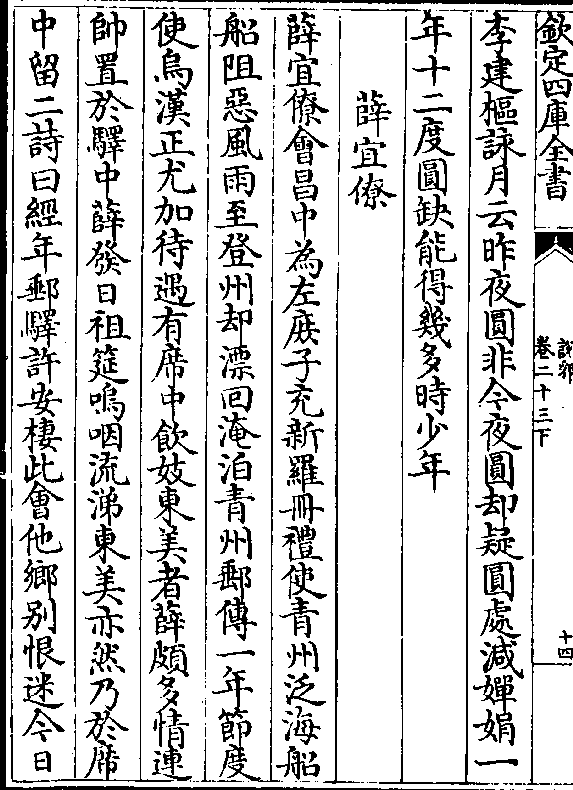 欽定四庫全書
說郛
卷二十三下
十四
李建樞詠月云昨夜圓非今夜圓却疑圓處減嬋娟一
年十二度圓缺能得幾多時少年
薛宜僚
薛宜僚會昌中為左庶子充新羅冊禮使青州泛海船
船阻惡風雨至登州却漂回淹泊青州郵傳一年節度
使烏漢正尤加待遇有席中飲妓東美者薛頗多情連
帥置於驛中薛發日祖筵嗚咽流涕東美亦然乃於席
中留二詩曰經年郵驛許安棲此會他鄉别恨迷今日